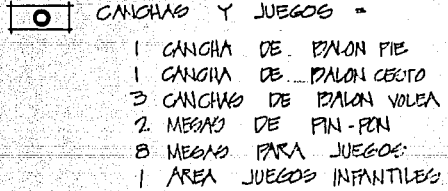 CANCHAS Y JUEGOS =
1 CANCHA DE BALON PIE
1 CANCHA DE BALON CESTO
3 CANCHAS DE BALON VOLEA
2 MESAS DE PIN-PON
8 MESAS PARA JUEGOS:
1 AREA JUEGOS INFANTILES